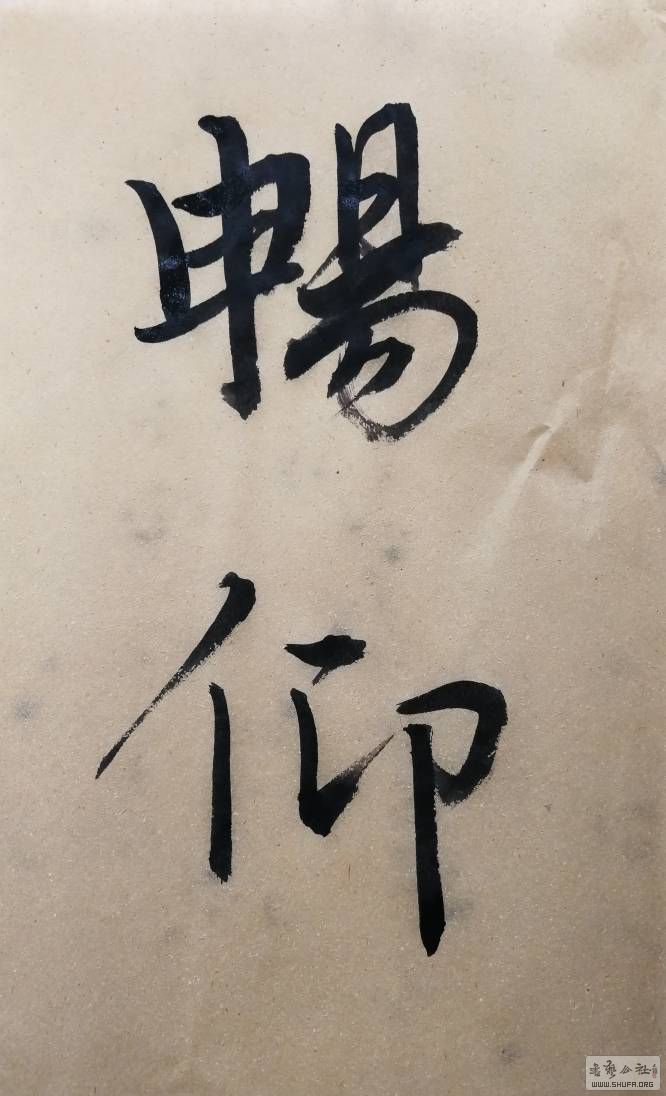 暢
仰
書藝公社
WWW.SHUFA.ORG